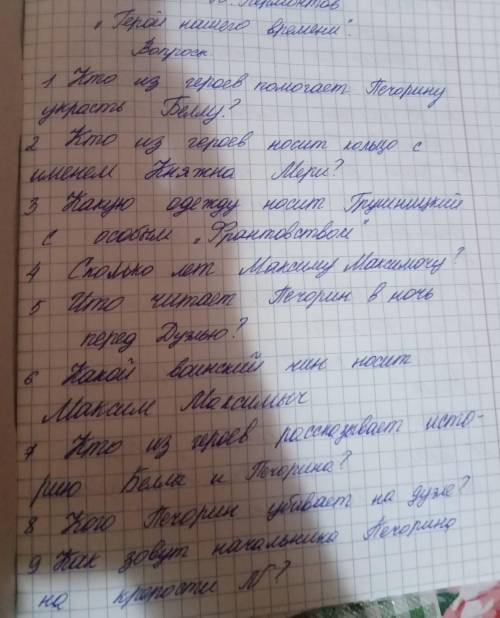 Ю. Лермонтов
"Герой нашего времени".
Вопросы
1 Кто из героев помогает Печорину
украсть Беллу?
2 Кто из героев носит кольцо с
именем Княжна Мери?
3 Какую одежду носит Грушницкий
с особым "Франтовством"
4 Сколько лет Максиму Максимычу?
5 Что читает Печорин в ночь
перед Дуэлью?
6 Какой воинский чин носит
Максим Максимыч
7 Кто из героев рассказывает исто-
рию Беллы и Печорина?
8 Кого Печорин убивает на дуэле?
9 Как зовут начальника Печорина
на крепости N?